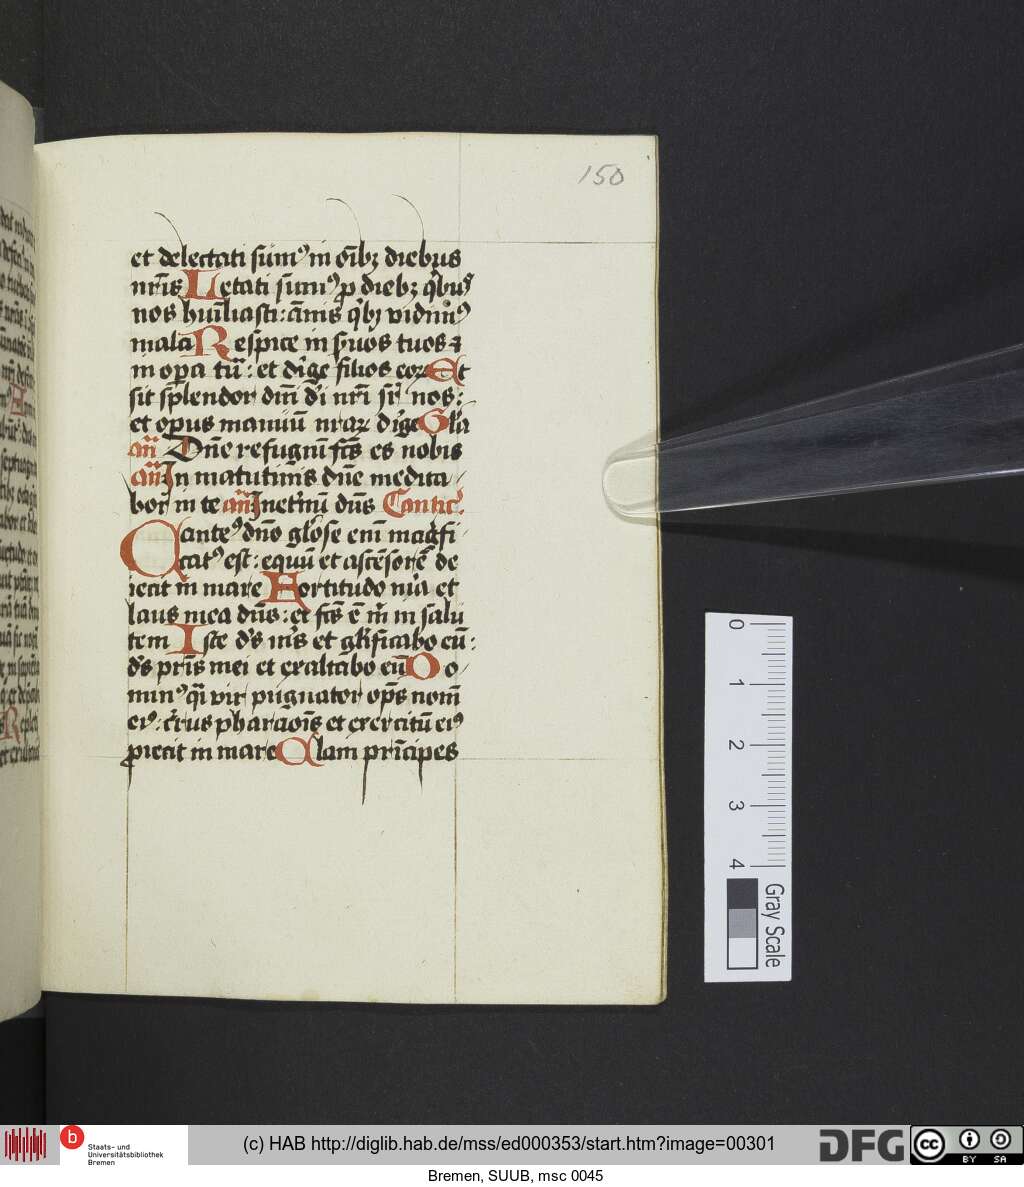 150
et delectati sum⁹ in oıbꝫ diebus
nr̄is Letati sum⁹ p diebꝫ qͥbus
nos huīliasti: ānis qͥbꝫ vidim⁹
mala Respice in s̄uos tuos ⁊
in op̄a tua: et dirige filios eoꝝ Et
sit splendor dn̄i dī nr̄i sr̄ nos:
et opus manuū nraꝝ dirige Glīa
añ Dn̄e refugiū fc̄s es nobis
añ In matutinis dn̄e medita
bor in te añ In et̄nū dn̄s Cantic⁹
Cantem⁹ dn̄o glōse enī magnifi
catus est: equū et ascēsorē de
iecit in mare Fortitudo mea et
laus mea dn̄s: et fc̄s ē m̄ in salu
tem Iste ds̄ m̄s et glīficabo eū:
ds̄ pr̄is mei et exaltabo eū Do
min⁹ qͣi vir pugnator op̄s nom̄
ei⁹: c̄rus pharaōis et exercitū ei⁹
proiecit in mare Electi principes
0 1 2 3 4
Gray Scale
b Staats- und
Universitätsbibliothek
Bremen
(c) HAB http://diglib.hab.de/mss/ed000353/start.htm?image=00301
DFG
cc BY SA
Bremen, SUUB, msc 0045